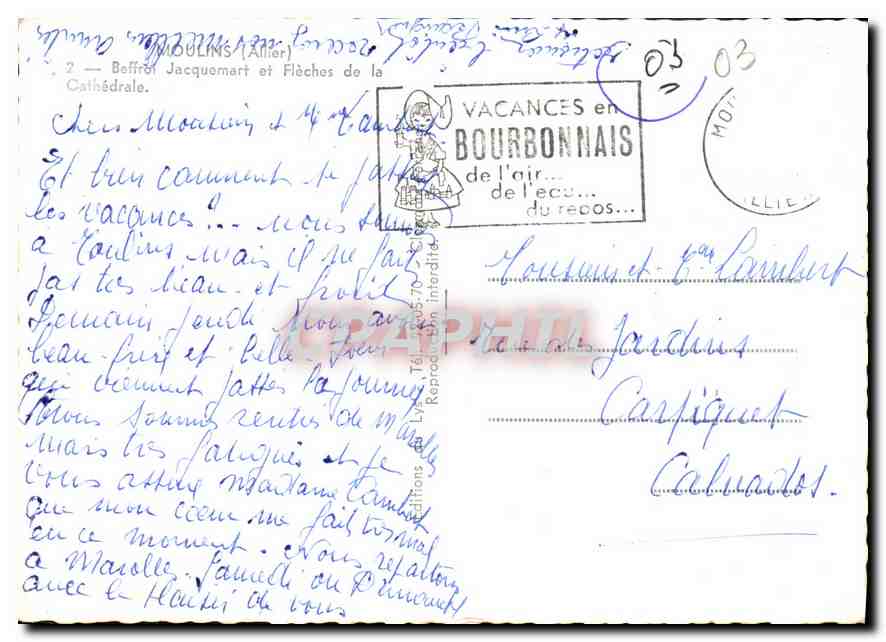 MOULINS (Allier)
2 — Beffroi Jacquemart et Flèches de la
Cathédrale.
Chers Monsieur et Mme Lambert
Et bien comment se passent
les vacances ?... nous sommes
à Moulins mais il ne fait
pas très beau et froid
Demain jeudi nous avons
beau-frère et belle soeur
qui viennent passer la journée
Nous sommes rentrés de Marolles
mais très fatigués et je
vous assure Madame Lambert
que mon coeur me fait très mal
en ce moment. Nous repartons
à Marolles Samedi ou Dimanche
avec le plaisir de vous
recevoir nos meilleurs
03
03
VACANCES en
BOURBONNAIS
de l'air...
de l'eau...
du repos...
Monsieur et Mme Lambert
Rue des Jardins
Carpiquet
Calvados.
Editions du Lys
Reproduction interdite.
CPAPHIL